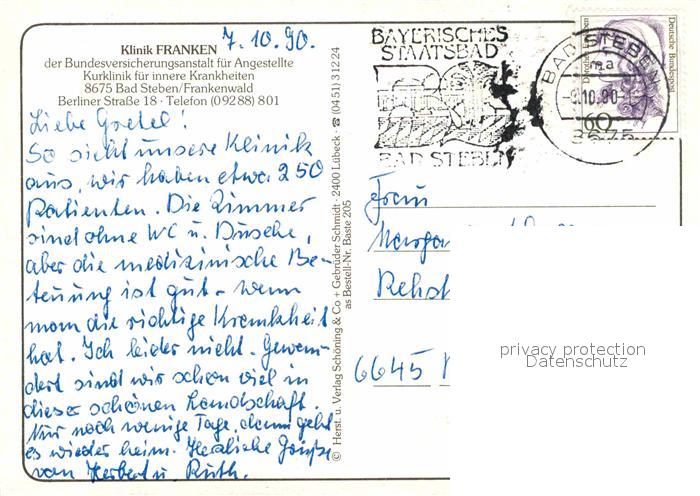 7.10.90.
Klinik FRANKEN
der Bundesversicherungsanstalt für Angestellte
Kurklinik für innere Krankheiten
8675 Bad Steben/Frankenwald
Berliner Straße 18 · Telefon (09288) 801
Liebe Gretel!
So sieht unsere Klinik
aus, wir haben etwa 250
Patienten. Die Zimmer
sind ohne WC u. Dusche,
aber die medizinische Be-
teuung ist gut - wenn
man die richtige Krankheit
hat. Ich leider nicht. Gewan-
dert sind wir schon viel in
dieser schönen Landschaft.
Nur noch wenige Tage, dann geht
es wieder heim. Herzliche Grüße
von Herbert u. Ruth.
© Herst. u. Verlag Schöning & Co + Gebrüder Schmidt · 2400 Lübeck · ☎ (0451) 31224
as Bestell-Nr. Baste 205
BAYERISCHES
STAATSBAD
BAD STEBEN
BAD STEBEN
ma
10.90
8675
Deutsche Bundespost
60
Frau
Rehst
6645
privacy protection
Datenschutz